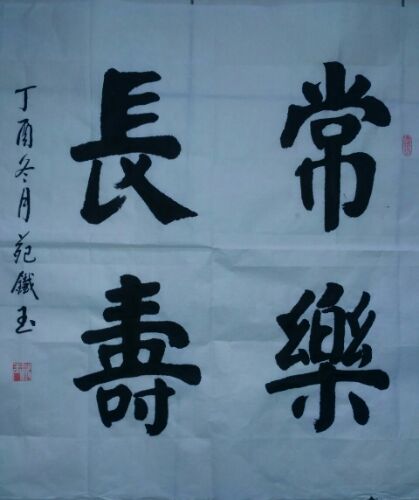 常樂
長壽
丁酉冬月苑鐵玉